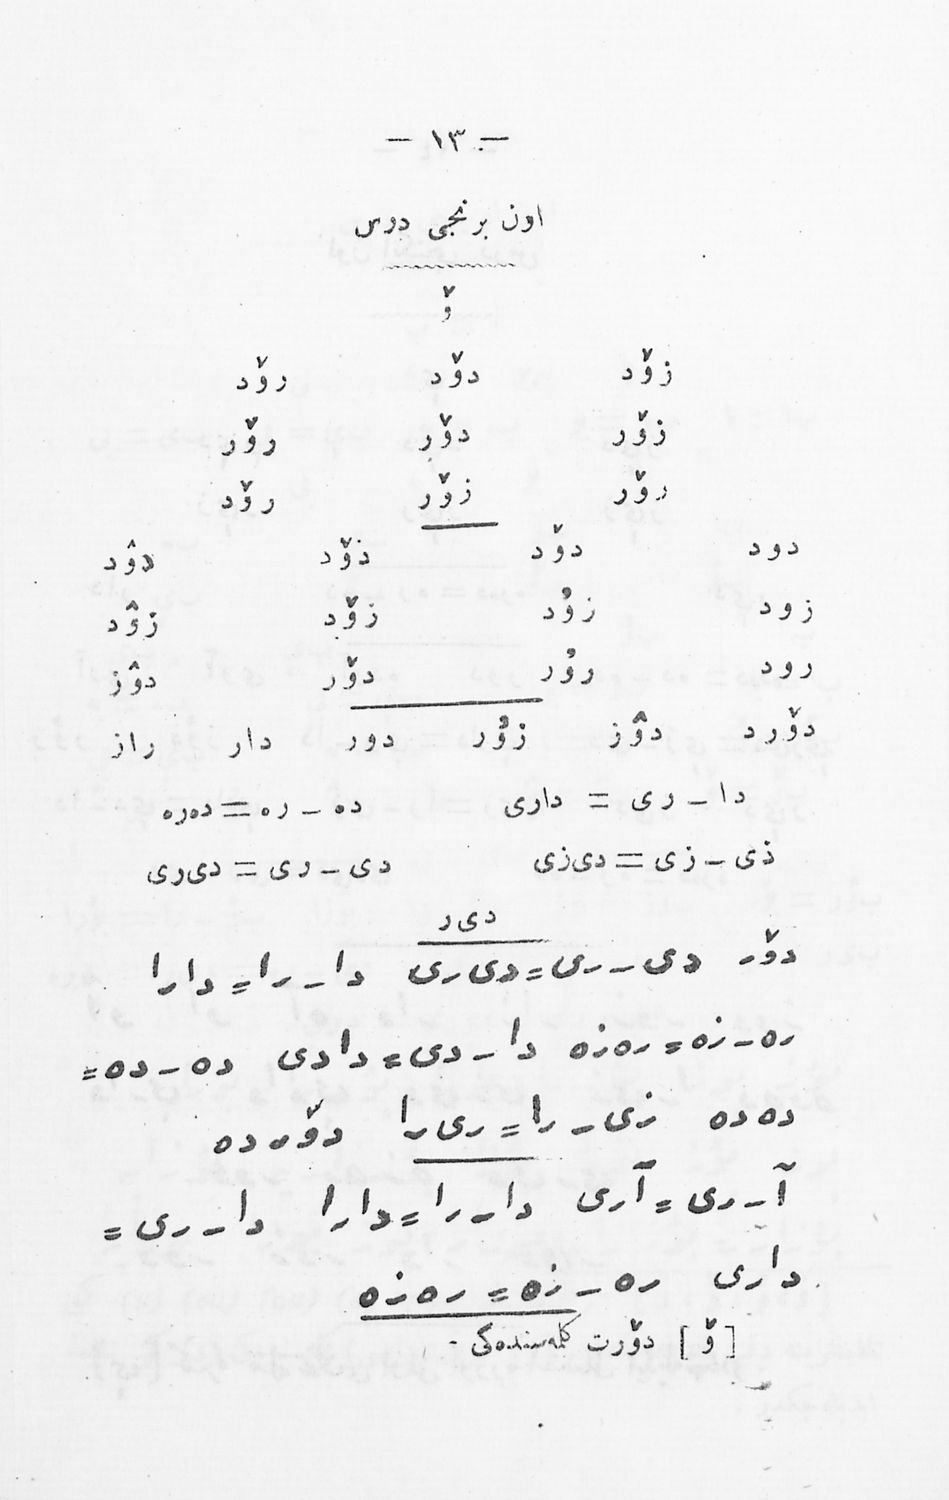 — ١٣ —
اون برنجی درس
وٚ
زوٚد دوٚد روٚد
زوٚر دوٚر روٚر
روٚر زوٚر روٚد
دود دوٚد ذوٚد دۇد
زود زۇد زوٚد زۇد
رود رۇر دوٚر دۇز
دوٚرد دۇز زۇر دور دار راز
دا ـ ری = داری ده ـ ره = دەرە
ذی ـ زی = دی‌زی دی ـ ری = دی‌ری
دی‌ر
دوٚر دی ـ ری = دی‌ری دا ـ را = دارا
ره ـ زه = رەزه دا ـ دی = دادی ده ـ ده =
دەده زی ـ را = ری‌را دوٚرده
آ ـ ری = آری دا ـ را = دارا دا ـ ری =
داری ره ـ زه = رەزه
[ وٚ ] دوٚرت كلمه‌سنده‌کی .